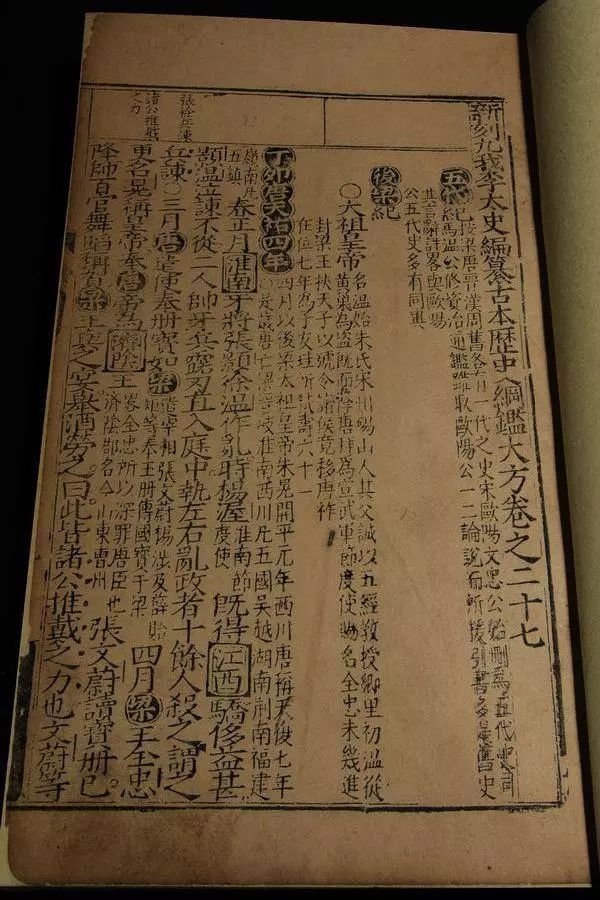 新刻九我李太史編纂古本歷史綱鑑大方卷之二十七
五代紀按梁唐晉漢周舊各有一代之史宋歐陽文忠公始刪為五代史詞
馬溫公修資治通鑑雖取歐陽公一二論說而所援引書多是舊史
其言辭詳畧與歐陽
公五代史多有同異
後梁紀
○太祖皇帝名溫始朱氏宋州碭山人其父誠以五經教授鄉里初溫從
黃巢為盜既而降唐拜為宣武軍節度使賜名全忠未幾進
封梁王挾天子以號令諸侯竟移唐祚
在位七年為子友珪所弒壽六十一
丁卯唐天祐四年四月以後梁太祖皇帝朱晃開平元年西川唐稱天復七年
○是歲唐亡梁晉岐淮南西川凡五國吳越湖南荆南福建
嶺南凡五鎮春正月淮南牙將張顥徐溫作亂時楊渥淮南節度使既得江西驕侈益甚
顥溫泣諫不從二人帥牙兵露刃直入庭中執左右亂政者十餘人殺之謂之
兵諫○三月唐遣使奉冊寶如梁遣宰相張文蔚楊涉及薛貽矩等奉玉冊傳國寶于梁四月梁王全忠
更名晃稱皇帝奉唐帝為濟陰王全忠所以深罪唐臣也濟陰郡名今山東曹州張文蔚讀寶冊已
降帥百官舞蹈稱賀梁王與之宴舉酒勞之曰此皆諸公推戴之力也文蔚等
張徐兵諫
諸公推戴
之力